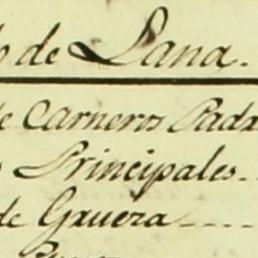 de Lana.
de Carneros Padr
Principales.
de Gruera